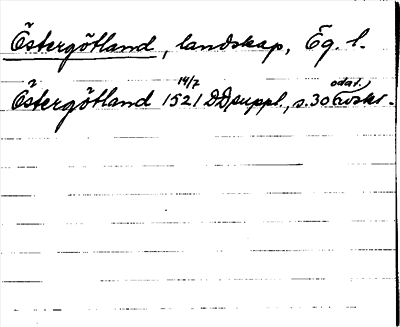 Östergötland, landskap, Ög. l.
Östergötland 1521 14/7 DD suppl., s. 30 odat. avskr.